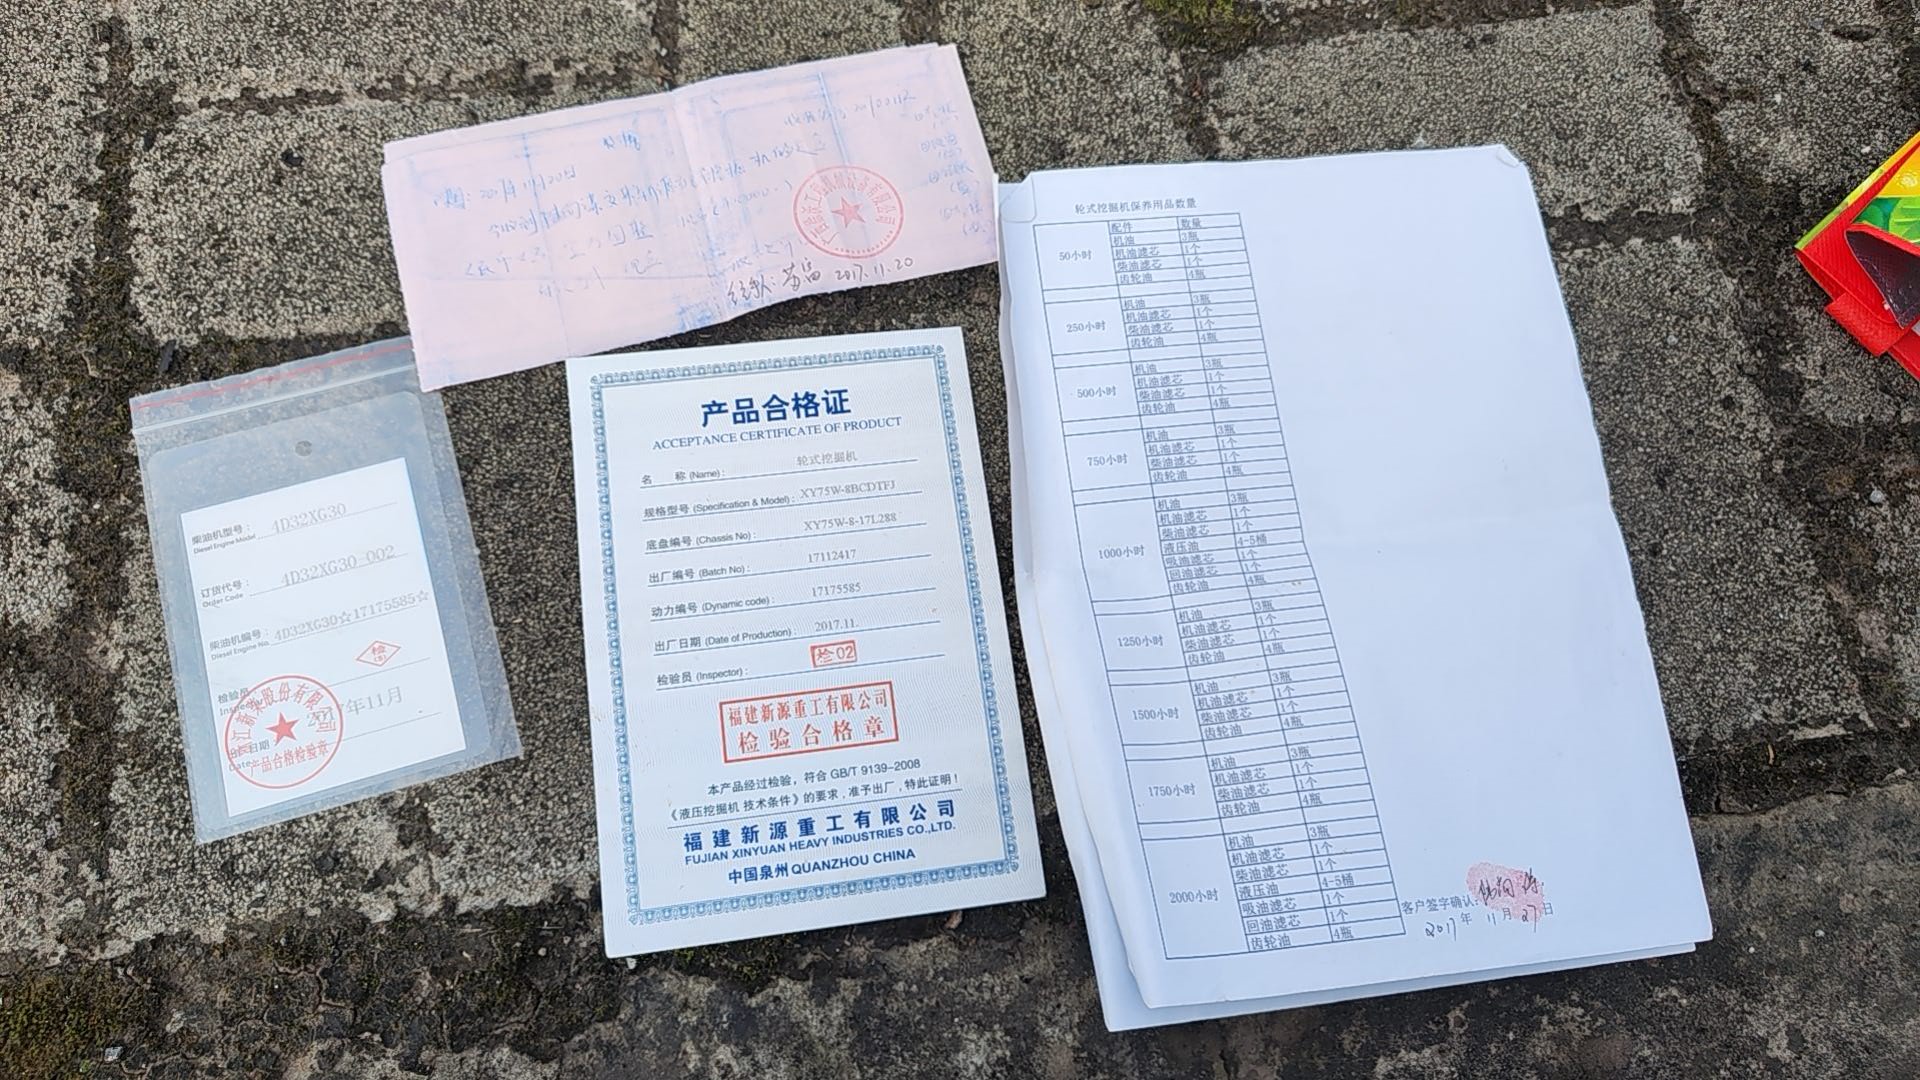 收据
2017.11.20
产品合格证
ACCEPTANCE CERTIFICATE OF PRODUCT
名 称 (Name): 轮式挖掘机
规格型号 (Specification & Model): XY75W-8BCDTFJ
底盘编号 (Chassis No): XY75W-8-17L288
出厂编号 (Batch No): 17112417
动力编号 (Dynamic code): 17175585
出厂日期 (Date of Production): 2017.11.
检验员 (Inspector): 检02
福建新源重工有限公司
检验合格章
本产品经过检验,符合 GB/T 9139-2008
《液压挖掘机 技术条件》的要求,准予出厂,特此证明!
福建新源重工有限公司
FUJIAN XINYUAN HEAVY INDUSTRIES CO.,LTD.
中国泉州 QUANZHOU CHINA
柴油机型号: 4D32XG30
Diesel Engine Model
订货代号: 4D32XG30-002
Order Code
柴油机编号: 4D32XG30☆17175585☆
Diesel Engine No.
检验员 检
(8)
Inspector
2017年11月
出厂日期
Date
产品合格检验章
轮式挖掘机保养用品数量
配件 数量
50小时
机油 3瓶
机油滤芯 1个
柴油滤芯 1个
齿轮油 4瓶
250小时
机油 3瓶
机油滤芯 1个
柴油滤芯 1个
齿轮油 4瓶
500小时
机油 3瓶
机油滤芯 1个
柴油滤芯 1个
齿轮油 4瓶
750小时
机油 3瓶
机油滤芯 1个
柴油滤芯 1个
齿轮油 4瓶
1000小时
机油 3瓶
机油滤芯 1个
柴油滤芯 1个
液压油 4-5桶
吸油滤芯 1个
回油滤芯 1个
齿轮油 4瓶
1250小时
机油 3瓶
机油滤芯 1个
柴油滤芯 1个
齿轮油 4瓶
1500小时
机油 3瓶
机油滤芯 1个
柴油滤芯 1个
齿轮油 4瓶
1750小时
机油 3瓶
机油滤芯 1个
柴油滤芯 1个
齿轮油 4瓶
2000小时
机油 3瓶
机油滤芯 1个
柴油滤芯 1个
液压油 4-5桶
吸油滤芯 1个
回油滤芯 1个
齿轮油 4瓶
客户签字确认:
2017年 11月 27日